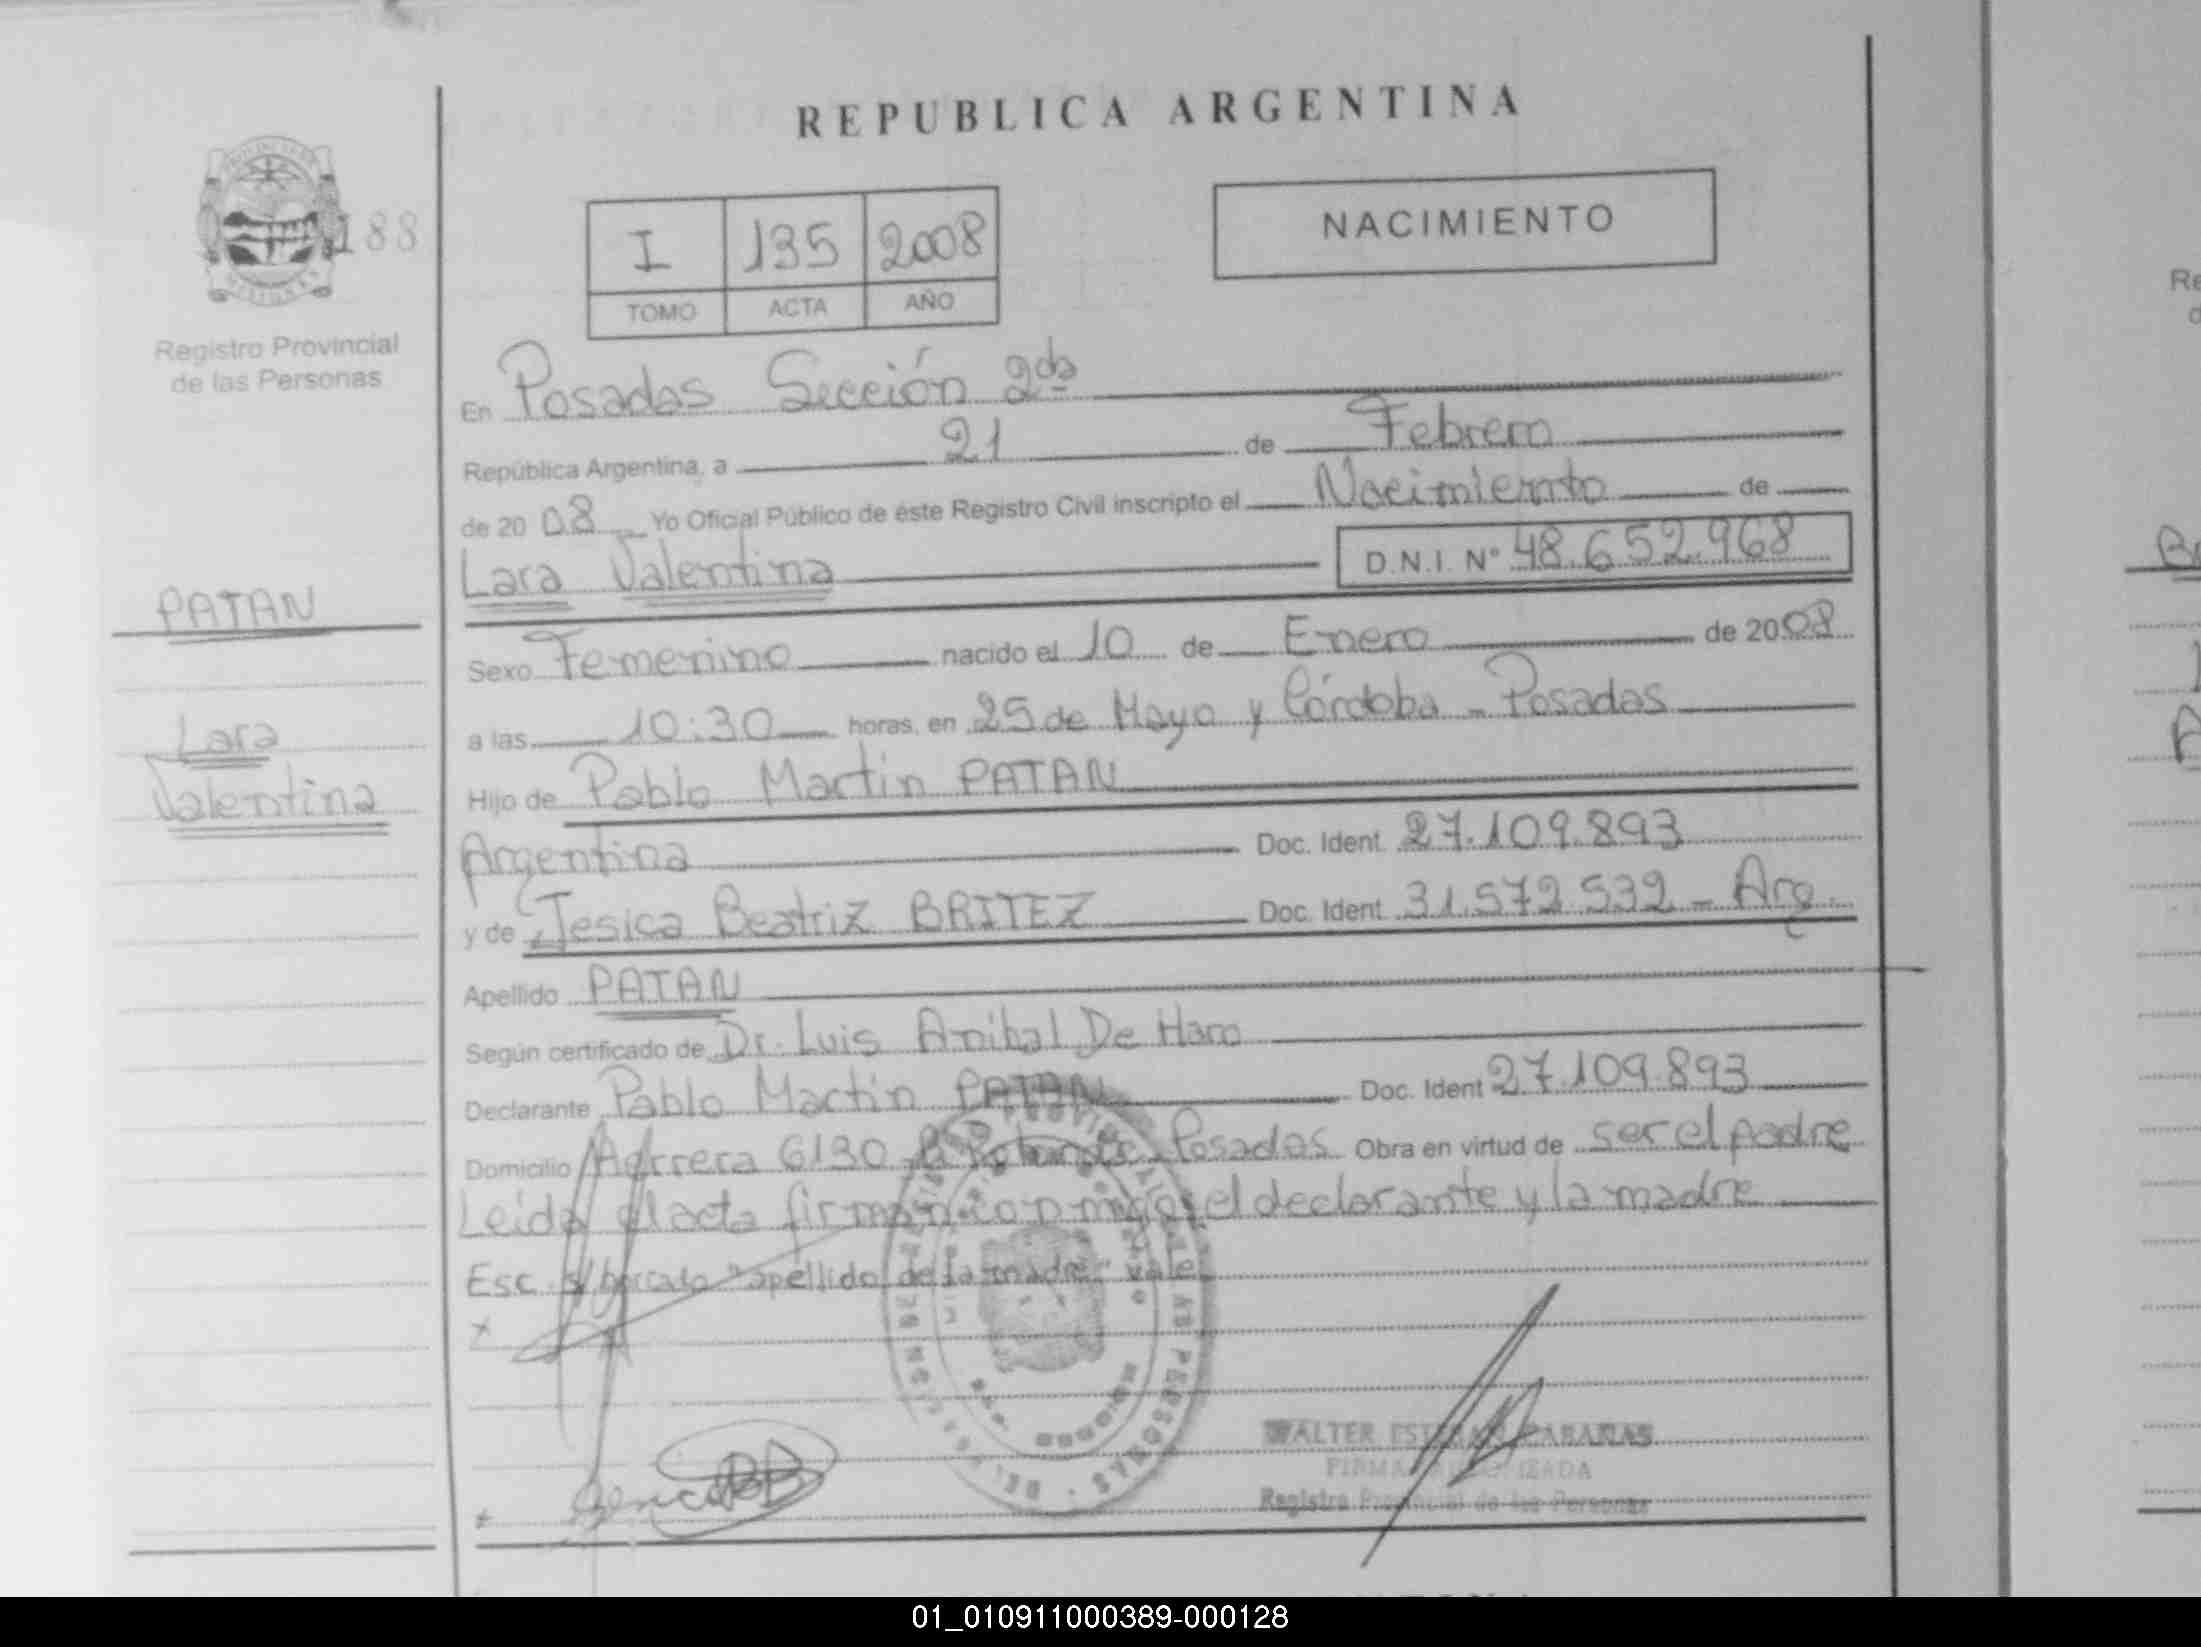 REPUBLICA ARGENTINA
188
I 135 2008
TOMO ACTA AÑO
NACIMIENTO
Registro Provincial
de las Personas
En Posadas Sección 2da
República Argentina, a 21 de Febrero
de 2008 Yo Oficial Público de éste Registro Civil inscripto el Nacimiento de
Lara Valentina D.N.I. N° 48.652.968
PATAN
Lara
Valentina
Sexo Femenino nacido el 10 de Enero de 2008
a las 10:30 horas, en 25 de Mayo y Córdoba - Posadas
Hijo de Pablo Martin PATAN
Argentina Doc. Ident. 27.109.893
y de Jesica Beatriz BRITEZ Doc. Ident. 31.572.532 - Arg.
Apellido PATAN
Según certificado de Dr. Luis Anibal De Haro
Declarante Pablo Martin PATAN Doc. Ident 27.109.893
Domicilio Herrera 6130 Posadas Obra en virtud de ser el padre
Leida el acta firman conmigo el declarante y la madre
Esc. s/ borrado "apellido de la madre" vale
WALTER ESTEBAN CABAÑAS
FIRMA AUTORIZADA
Registro Provincial de las Personas
01_010911000389-000128